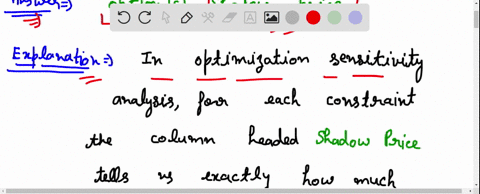 Answer⇒
optimal shadow price
Explanation⇒ In optimization sensitivity
analysis, for each constraint
the column headed Shadow Price
tells us exactly how much